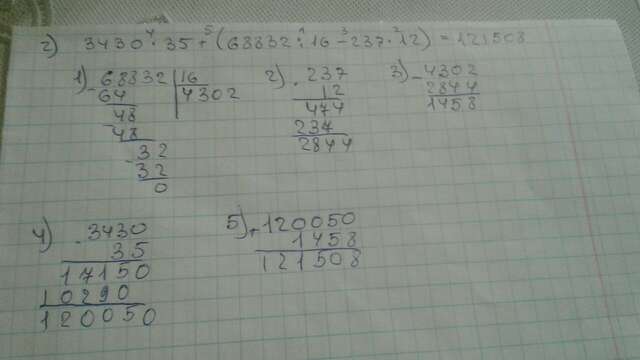 2) 3430 · 35 + (68832 : 16 - 237 · 12) = 121508
4 5 1 3 2
1) - 68832 | 16
64 4302
- 48
48
- 32
32
0
2) · 237
12
474
237
2844
3) - 4302
2844
1458
4) · 3430
35
17150
10290
120050
5) + 120050
1458
121508